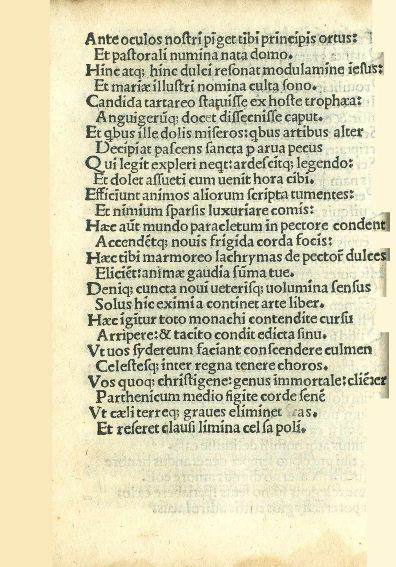 Ante oculos nostri pĩget tibi principis ortus:
Et pastorali numina nata domo.
Hinc atq; hinc dulci resonat modulamine iesus:
Et mariæ illustri nomina culta sono.
Candida tartareo statuisse ex hoste trophæa:
Anguigerũq; docet dissecuisse caput.
Et qbus ille dolis miseros: qbus artibus alter
Decipiat pascens sancta parua pecus
Qui legit expleri neqt: ardescitq; legendo:
Et dolet assueti cum uenit hora cibi.
Efficiunt animos aliorum scripta tumentes:
Et nimium sparsis luxuriare comis:
Hæc aũt mundo paracletum in pectore condent
Accendẽtq; nouis frigida corda focis:
Hæc tibi marmoreo lachrymas de pectorẽ dulces
Eliciẽt: animæ gaudia sũma tue.
Deniq; cuncta noui ueterisq; uolumina sensus
Solus hic eximia continet arte liber.
Hæc igitur toto monachi contendite cursu
Arripere: & tacito condit edicta sinu.
Vt uos sydereum faciant conscendere culmen
Celestesq; inter regna tenere choros.
Vos quoq; christigene: genus immortale: cliẽter
Parthenicum medio figite corde senẽ
Vt cæli terreq; graues eliminet ras.
Et reseret clausi limina celsa poli.